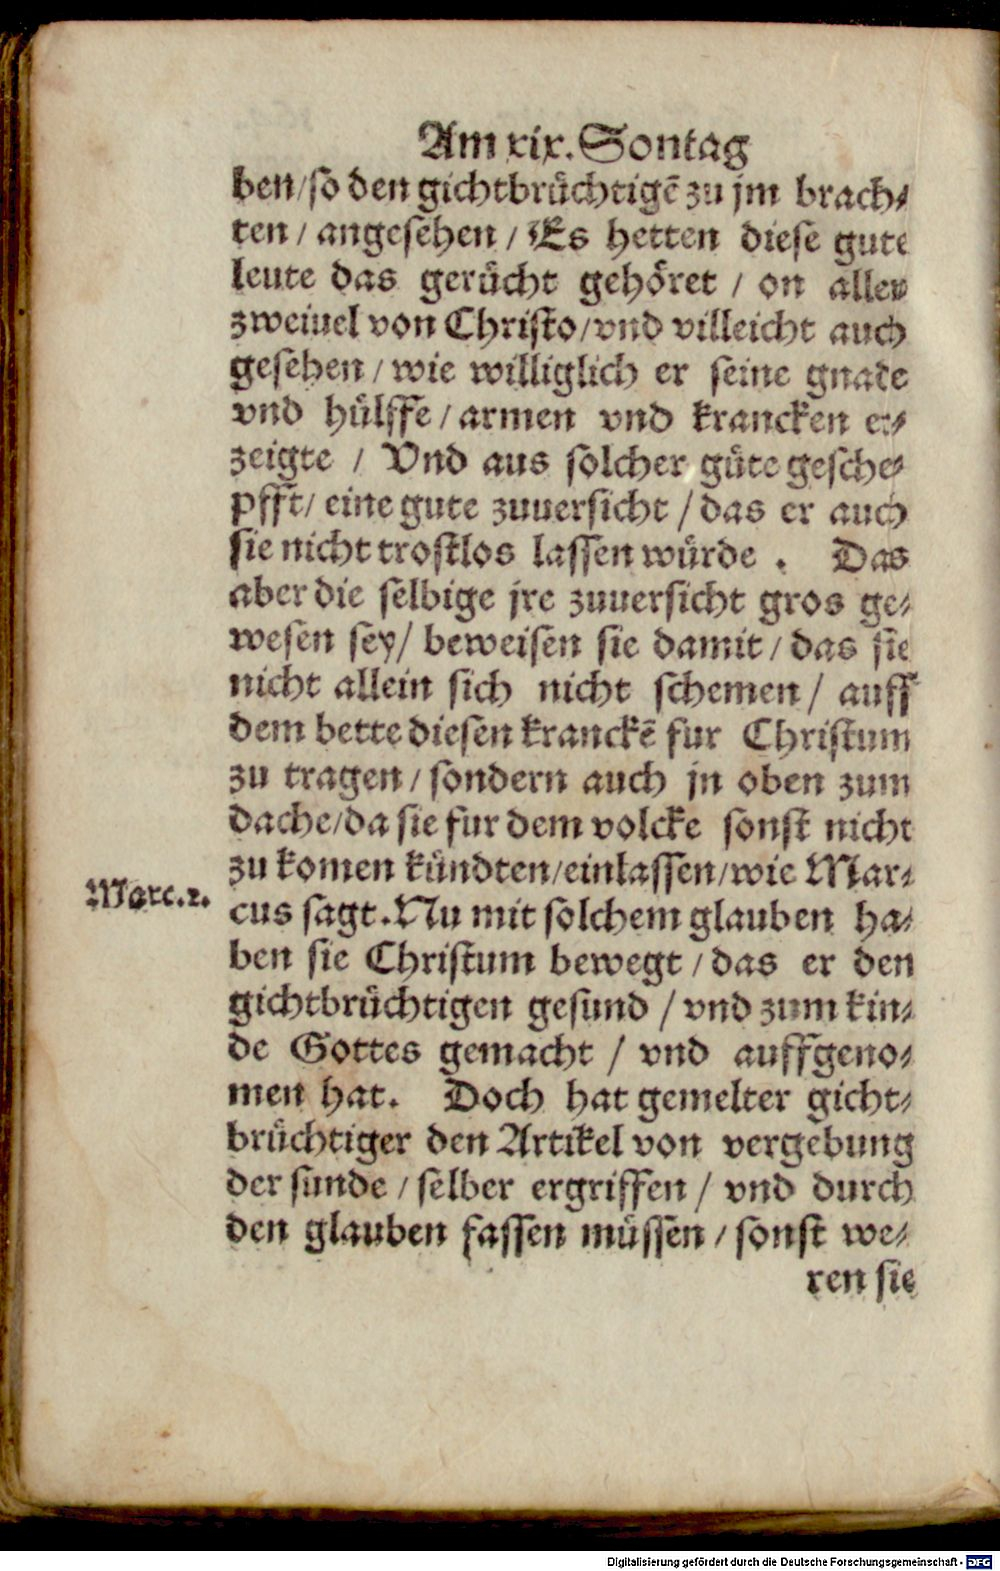 Am xix. Sontag
ben/so den gichtbrüchtigẽ zu jm brach⸗
ten / angesehen / Es hetten diese gute
leute das gerücht gehöret / on allen
zweiuel von Christo/vnd villeicht auch
gesehen / wie williglich er seine gnade
vnd hülffe / armen vnd krancken er⸗
zeigte / Vnd aus solcher güte gesche⸗
pfft/ eine gute zuuersicht / das er auch
sie nicht trostlos lassen würde . Das
aber die selbige jre zuuersicht gros ge⸗
wesen sey/ beweisen sie damit / das sie
nicht allein sich nicht schemen / auff
dem bette diesen kranckẽ fur Christum
zu tragen / sondern auch jn oben zum
dache/da sie fur dem volcke sonst nicht
zu komen kündten/einlassen/wie Mar⸗
Marc.2.
cus sagt. Nu mit solchem glauben ha⸗
ben sie Christum bewegt / das er den
gichtbrüchtigen gesund / vnd zum kin⸗
de Gottes gemacht / vnd auffgeno⸗
men hat. Doch hat gemelter gicht⸗
brüchtiger den Artikel von vergebung
der sunde / selber ergriffen / vnd durch
den glauben fassen müssen / sonst we⸗
ren sie
Digitalisierung gefördert durch die Deutsche Forschungsgemeinschaft - DFG